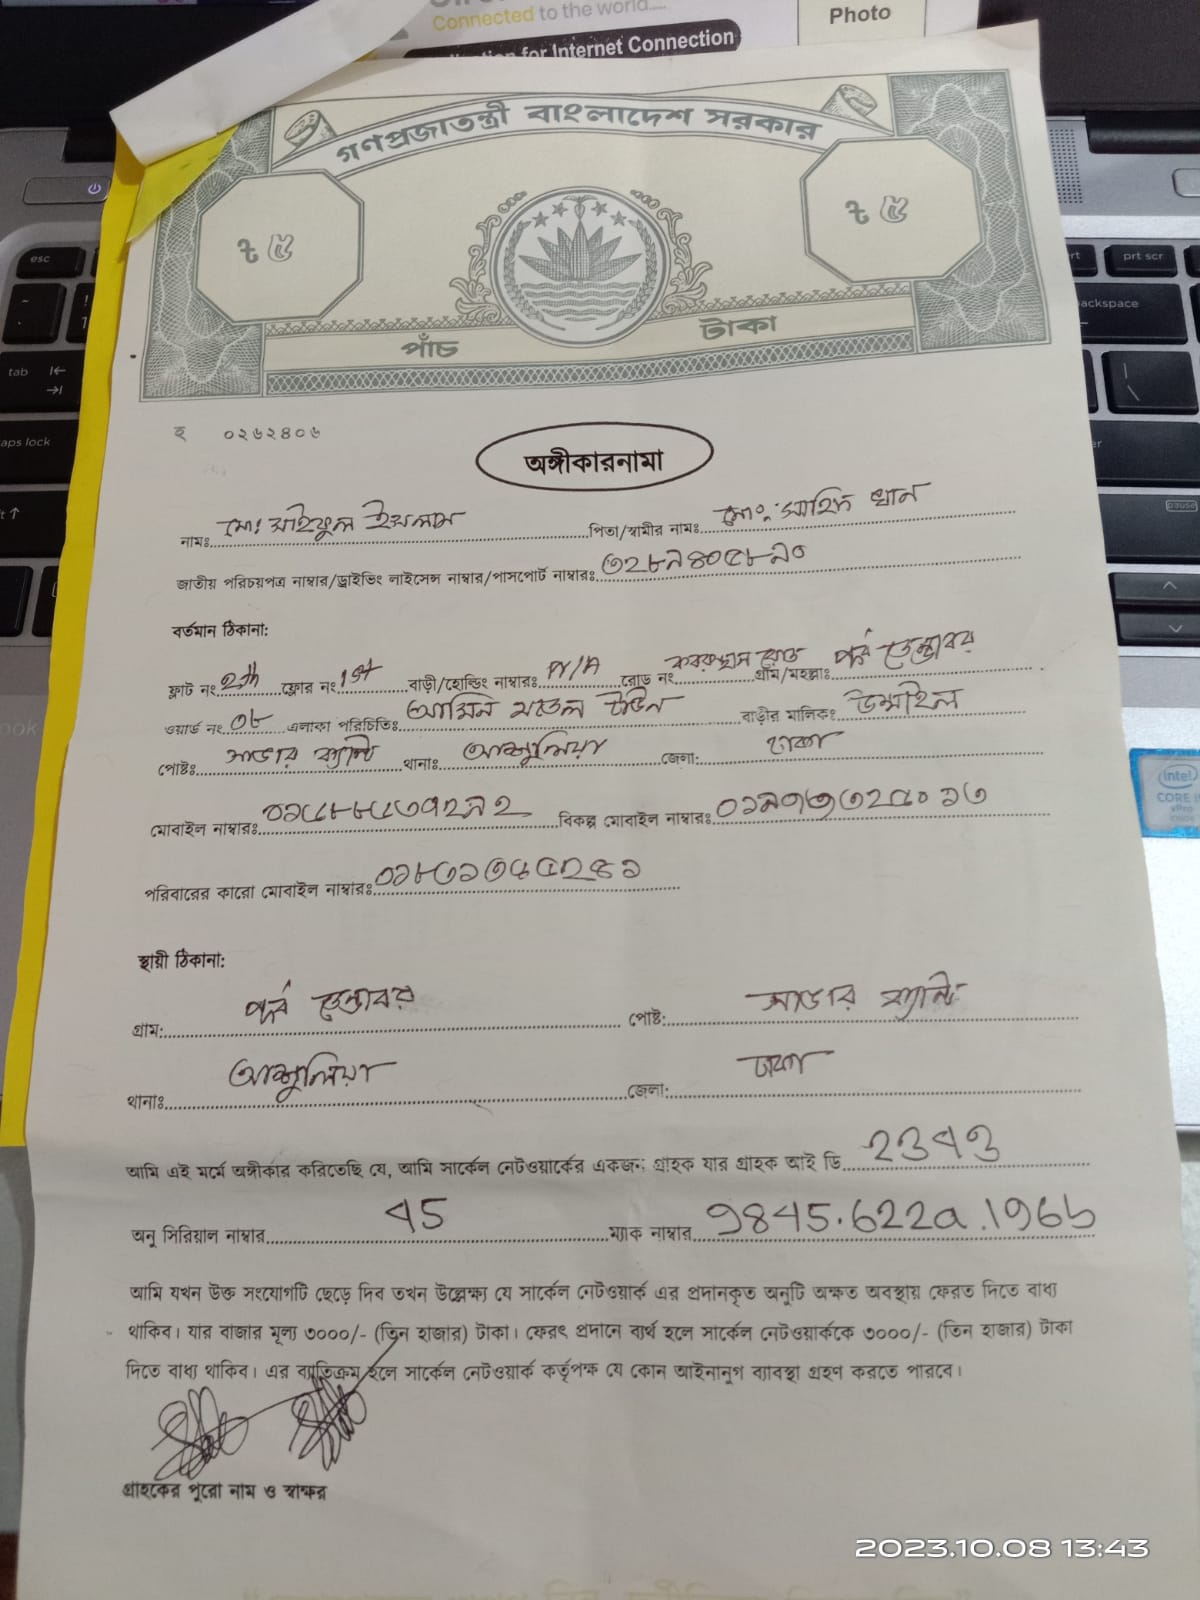 Connected to the world....
Photo
for Internet Connection
গণপ্রজাতন্ত্রী বাংলাদেশ সরকার
৳ ৫
৳ ৫
পাঁচ টাকা
০২৬২৪০৬
অঙ্গীকারনামা
নামঃ মোঃ সাইফুল ইসলাম পিতা/স্বামীর নামঃ মোঃ সাহিদ খান
জাতীয় পরিচয়পত্র নাম্বার/ড্রাইভিং লাইসেন্স নাম্বার/পাসপোর্ট নাম্বারঃ ৩২৮৯৪০৫৮৯০
বর্তমান ঠিকানা:
ফ্লাট নং 2th ফ্লোর নং 1st বাড়ী/হোল্ডিং নাম্বারঃ N/A রোড নং কবরস্থান রোড গ্রাম/মহল্লাঃ পূর্ব ডেন্ডাবর
ওয়ার্ড নং ০৮ এলাকা পরিচিতিঃ আমিন মডেল টাউন বাড়ীর মালিকঃ
পোষ্টঃ সাভার ক্যান্ট থানাঃ আশুলিয়া জেলা: ঢাকা
মোবাইল নাম্বারঃ ০১৫৮৮৫৩৭২৯২ বিকল্প মোবাইল নাম্বারঃ
পরিবারের কারো মোবাইল নাম্বারঃ
স্থায়ী ঠিকানা:
গ্রাম: পূর্ব ডেন্ডাবর পোষ্ট: সাভার ক্যান্ট
থানাঃ আশুলিয়া জেলা: ঢাকা
আমি এই মর্মে অঙ্গীকার করিতেছি যে, আমি সার্কেল নেটওয়ার্কের একজন; গ্রাহক যার গ্রাহক আই ডি
অনু সিরিয়াল নাম্বার 45 ম্যাক নাম্বার 9845.622a.196b
আমি যখন উক্ত সংযোগটি ছেড়ে দিব তখন উল্লেক্ষ্য যে সার্কেল নেটওয়ার্ক এর প্রদানকৃত অনুটি অক্ষত অবস্থায় ফেরত দিতে বাধ্য
থাকিব। যার বাজার মূল্য ৩০০০/- (তিন হাজার) টাকা। ফেরৎ প্রদানে ব্যর্থ হলে সার্কেল নেটওয়ার্ককে ৩০০০/- (তিন হাজার) টাকা
দিতে বাধ্য থাকিব। এর ব্যতিক্রম হলে সার্কেল নেটওয়ার্ক কর্তৃপক্ষ যে কোন আইনানুগ ব্যাবস্থা গ্রহণ করতে পারবে।
গ্রাহকের পুরো নাম ও স্বাক্ষর
2023.10.08 13:43
esc
tab
caps lock
prt scr
backspace
pause
intel
CORE i5
vPro